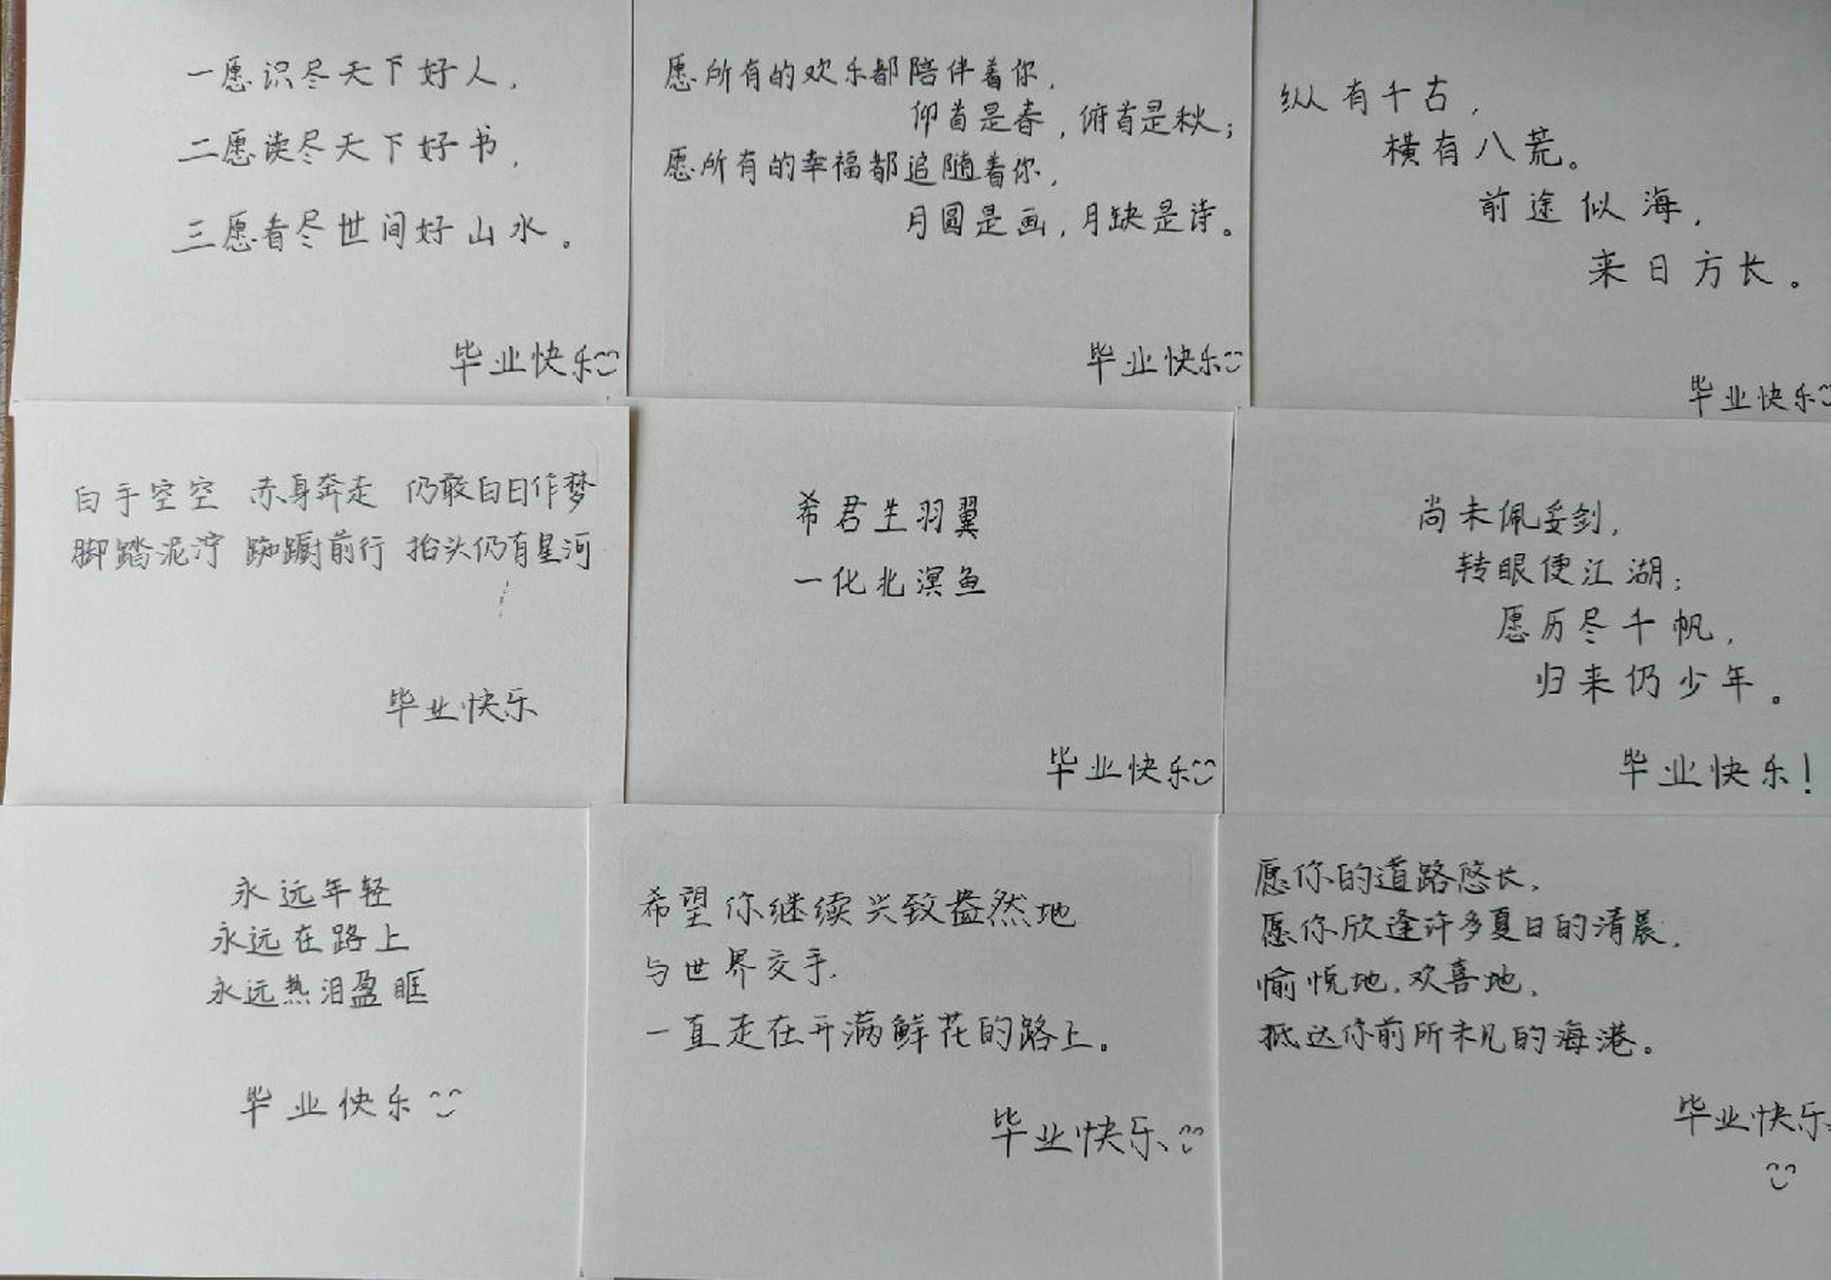 一愿识尽天下好人，
二愿读尽天下好书，
三愿看尽世间好山水。
毕业快乐
愿所有的欢乐都陪伴着你，
仰首是春，俯首是秋；
愿所有的幸福都追随着你，
月圆是画，月缺是诗。
毕业快乐
纵有千古，
横有八荒。
前途似海，
来日方长。
毕业快乐
白手空空 赤身奔走 仍敢白日作梦
脚踏泥泞 踟蹰前行 抬头仍有星河
毕业快乐
希君生羽翼
一化北溟鱼
毕业快乐
尚未佩妥剑，
转眼便江湖；
愿历尽千帆，
归来仍少年。
毕业快乐！
永远年轻
永远在路上
永远热泪盈眶
毕业快乐
希望你继续兴致盎然地
与世界交手，
一直走在开满鲜花的路上。
毕业快乐
愿你的道路悠长，
愿你欣逢许多夏日的清晨，
愉悦地，欢喜地，
抵达你前所未见的海港。
毕业快乐